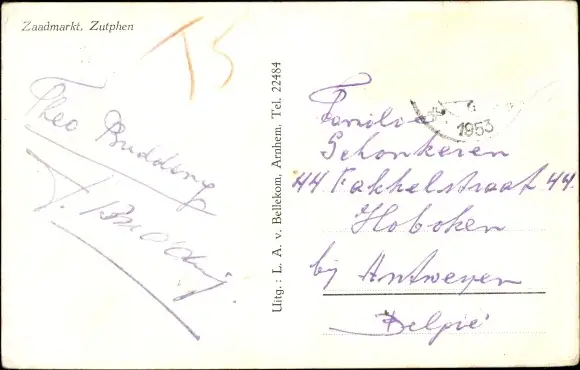 Zaadmarkt, Zutphen
T5
Theo Budding
T. Budding.
Uitg.: L. A. v. Bellekom, Arnhem, Tel. 22484
1953
Familie
Schonkeren
44 Fakkelstraat 44
Hoboken
bij Antwerpen
België